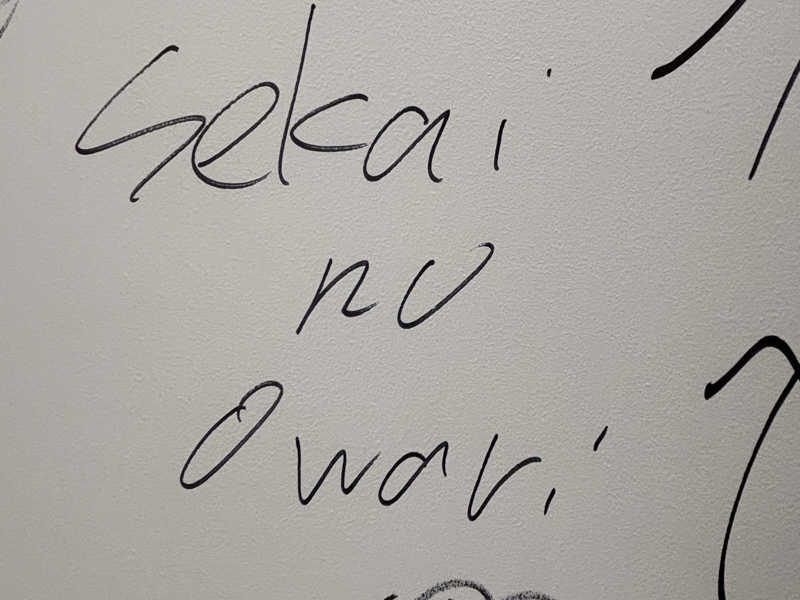 Sekai
no
Owari